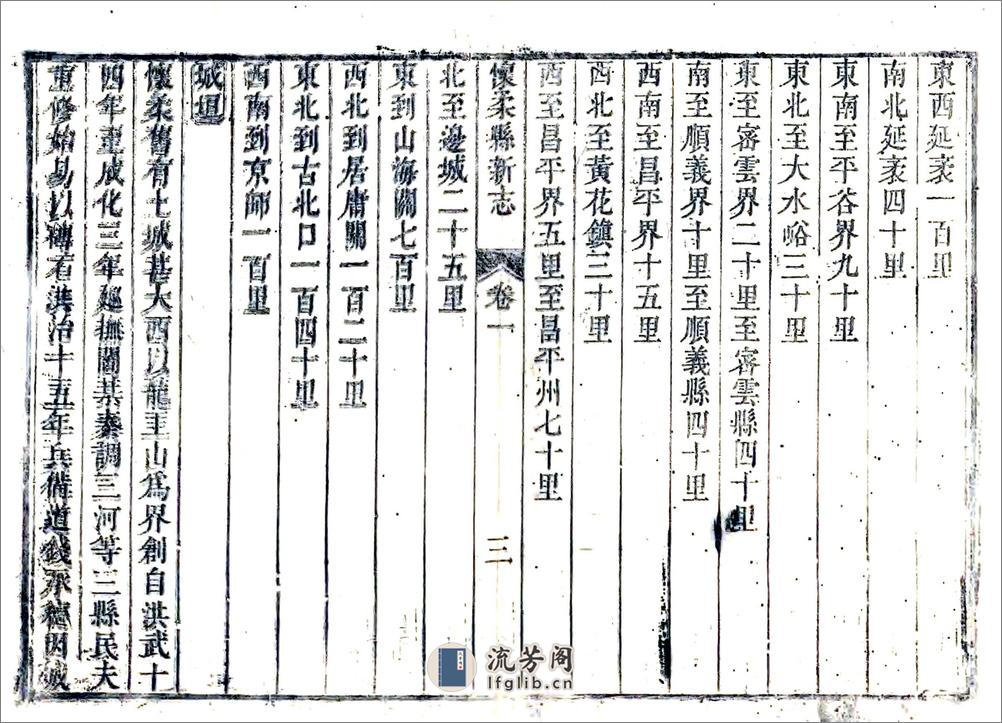 東西延袤一百里
南北延袤四十里
東南至平谷界九十里
東北至大水峪三十里
東至密雲界二十里至密雲縣四十里
南至順義界十里至順義縣四十里
西南至昌平界十五里
西北至黃花鎮三十里
西至昌平界五里至昌平州七十里
懷柔縣新志 卷一 三
北至邊城二十五里
東到山海關七百里
西北到居庸關一百二十里
東北到古北口一百四十里
西南到京師一百里
城垣
懷柔舊有土城甚大西以龍王山爲界創自洪武十
四年至成化三年廵撫閻某奏調三河等三縣民夫
重修始易以磚石洪治十五年兵備道錢承德因城
流芳阁
lfglib.cn